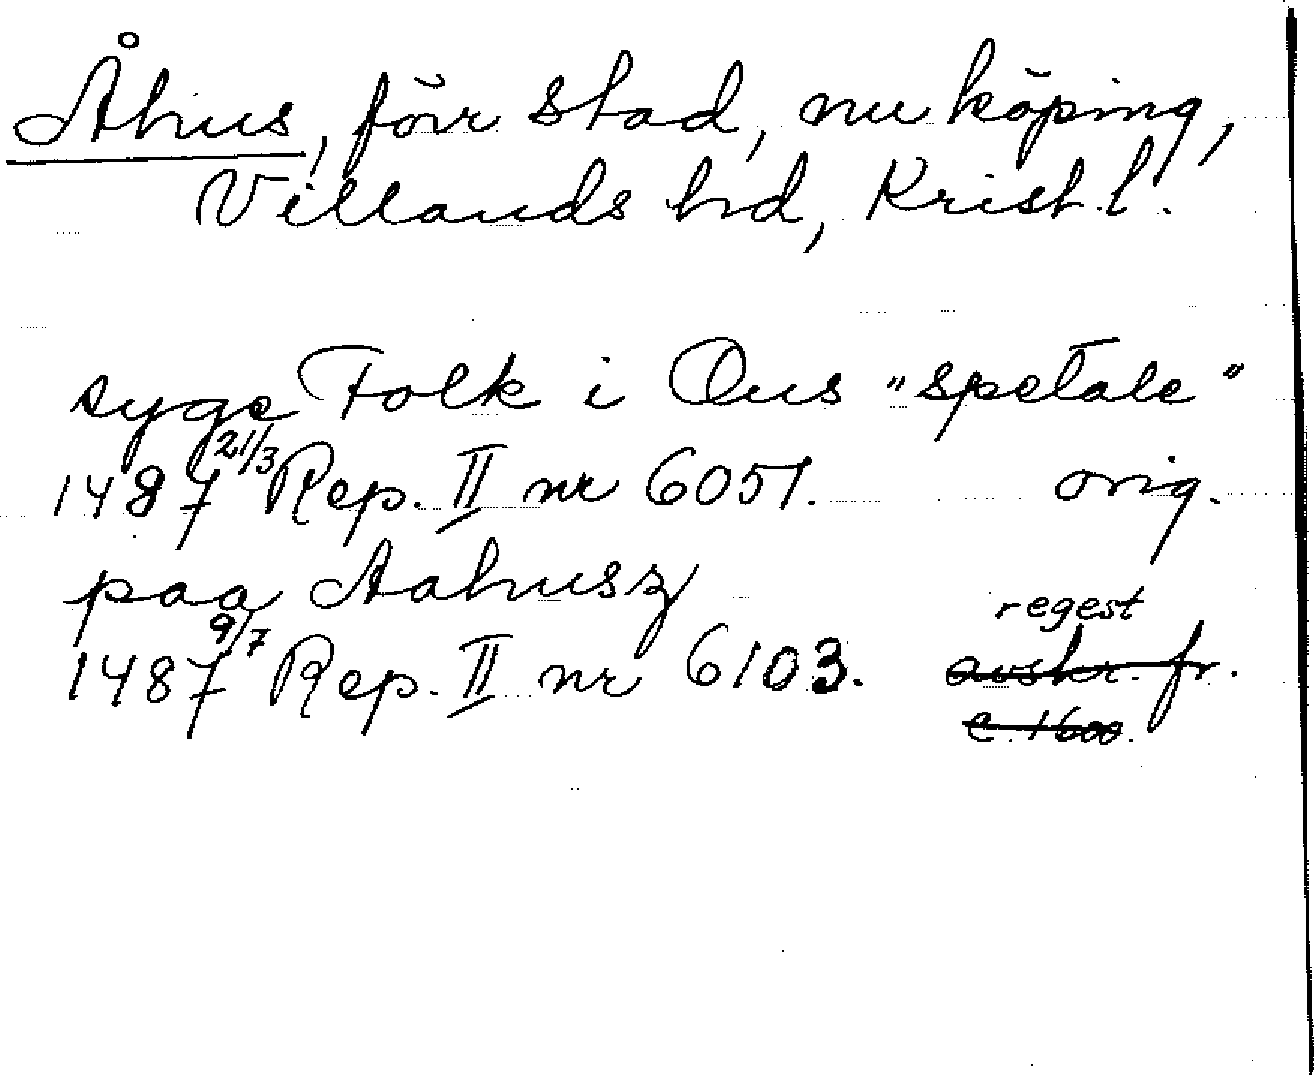 Åhus, förr stad, nu köping,
Villands hd, Krist. l.
syge Folk i Ous "spetale"
1487 21/3 Rep. II nr 6051. orig.
paa Aahusz
1487 9/7 Rep. II nr 6103. regest
avskr. fr.
c. 1600.